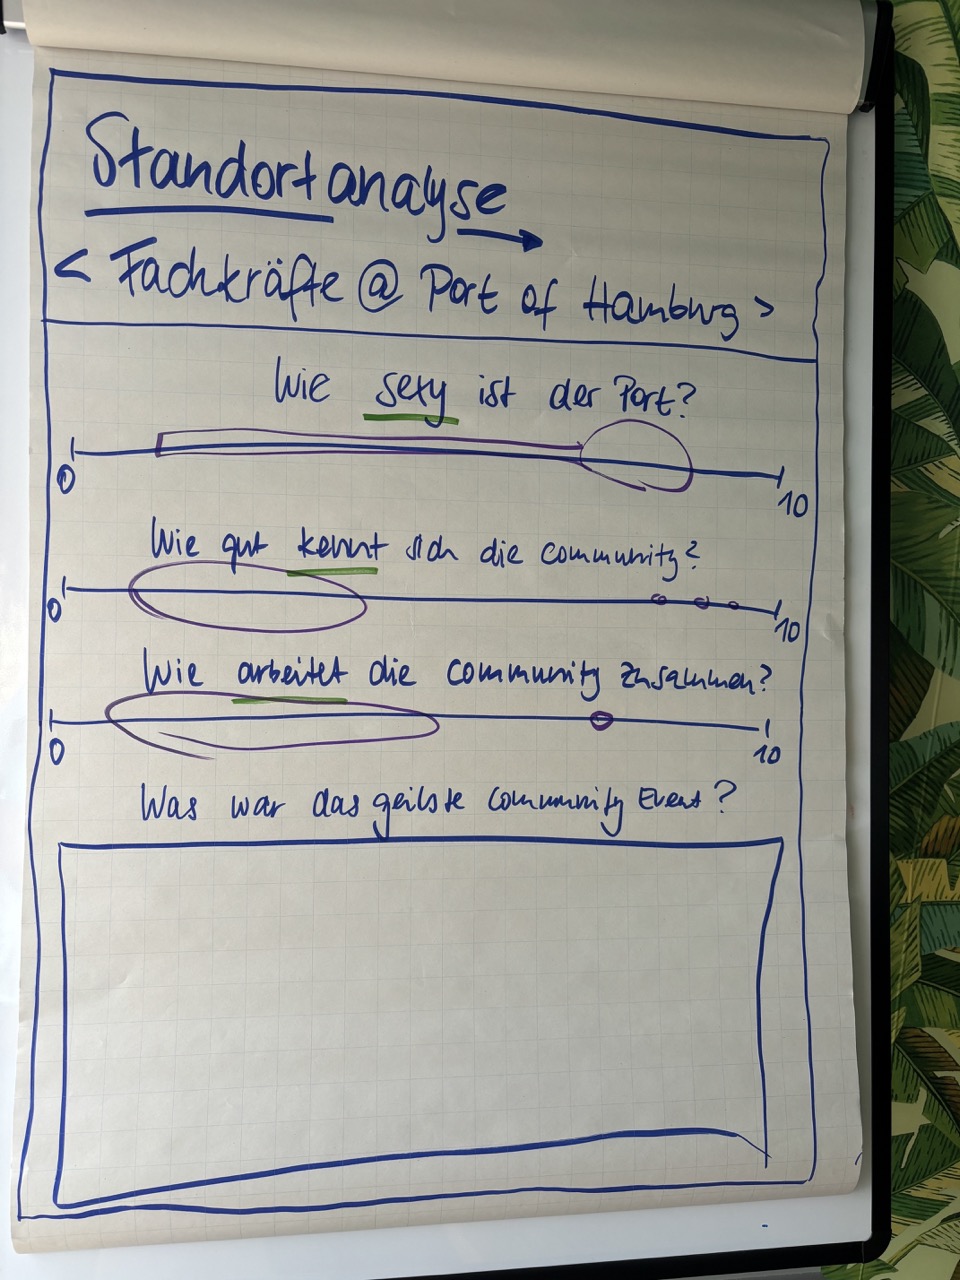 Standortanalyse
< Fachkräfte @ Port of Hamburg >
Wie sexy ist der Port?
0 10
Wie gut kennt sich die community?
0 10
Wie arbeitet die community zusammen?
0 10
Was war das geilste Community Event?